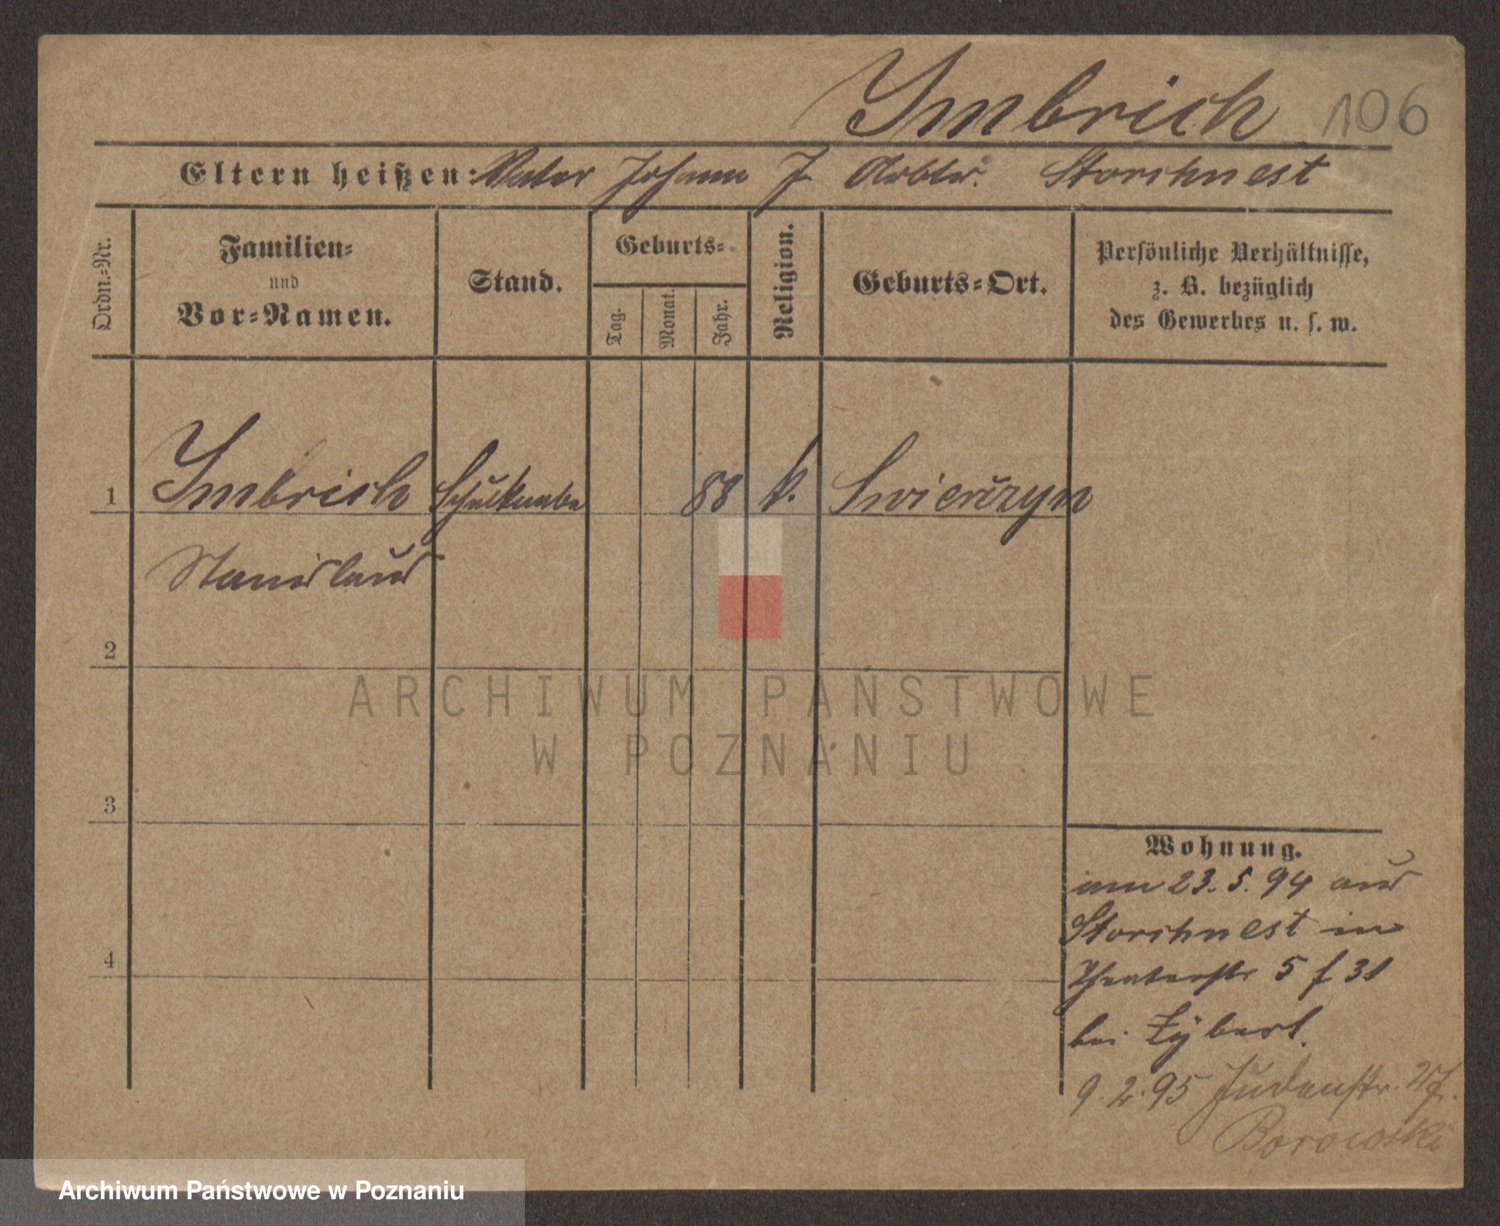 Ymbrich 106
Eltern heißen: Vater Johann J. Arbtr. Storchnest
Ordn.-Nr.
Familien-
und
Vor-Namen.
Stand.
Geburts-
Tag.
Monat.
Jahr.
Religion.
Geburts-Ort.
Persönliche Verhältnisse,
z. B. bezüglich
des Gewerbes u. s. w.
1 Ymbrich Schulknabe 88 k. Swierczyn
Stanislaus
2
ARCHIWUM PAŃSTWOWE
W POZNANIU
3
4
Wohnung.
am 23.5.94 aus
Storchnest in
Theaterstr 5
bei Zybert.
9.2.95 Judenstr.
Borowski
Archiwum Państwowe w Poznaniu